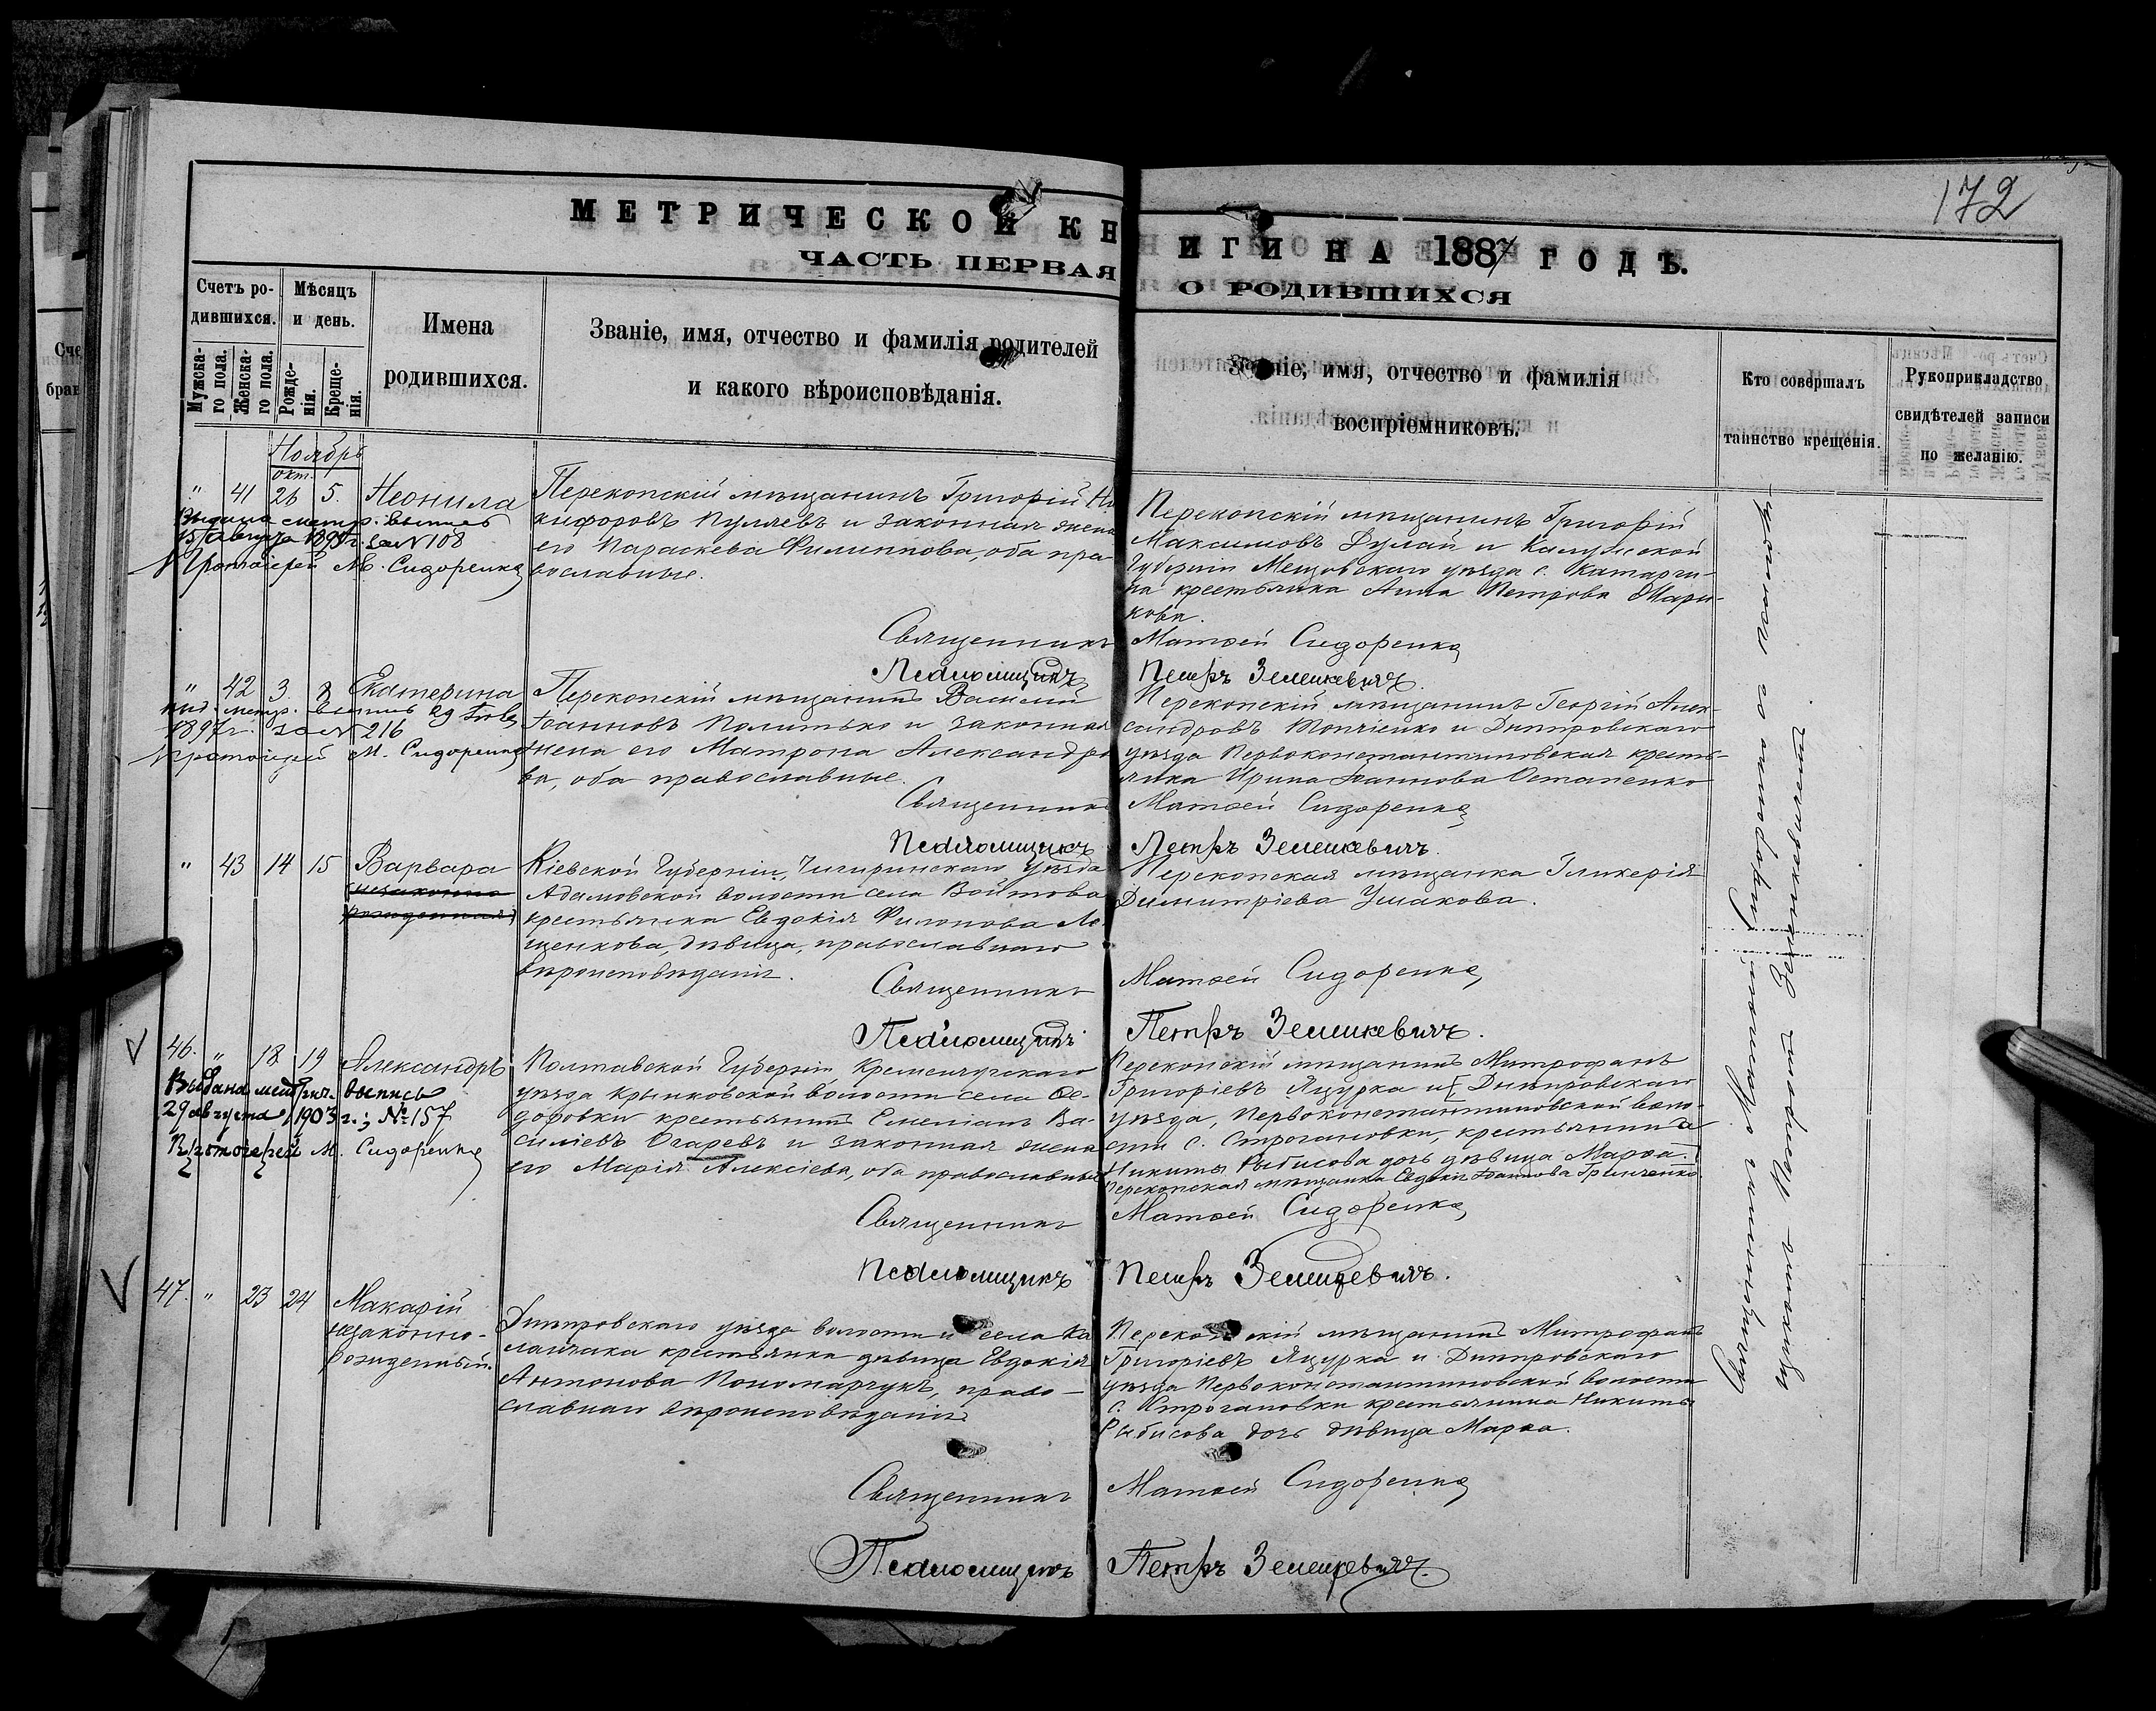 172
МЕТРИЧЕСКОЙ КНИГИ НА 1887 ГОДЪ.
ЧАСТЬ ПЕРВАЯ О РОДИВШИХСЯ
Счетъ родившихся.
Мужскаго пола.
Женскаго пола.
Мѣсяцъ и день.
Рожденія.
Крещенія.
Имена родившихся.
Званіе, имя, отчество и фамилія родителей
и какого вѣроисповѣданія.
Званіе, имя, отчество и фамилія
воспріемниковъ.
Кто совершалъ
таинство крещенія.
Рукоприкладство
свидѣтелей записи
по желанію.
Ноябрь
окт.
" 41 26 5. Неонила
Выдана метр. выпись
15 августа за № 108
Протоіерей М. Сидоренко
Перекопскій мѣщанинъ Григорій Ни-
кифоровъ Пуляевъ и законная жена
его Параскева Филиппова, оба пра-
вославные.
Перекопскій мѣщанинъ Григорій
Максимовъ Дулай и Калужской
Губерніи Мещовскаго уѣзда с.
на крестьянка Анна Петрова
кова.
Священникъ Матѳей Сидоренко
Псаломщикъ Петръ Земшкевичъ.
" 42 3. 8 Екатерина
выд. метр. выпись 29
1897 г. за № 216
Протоіерей М. Сидоренко
Перекопскій мѣщанинъ Василій
Іоанновъ Политько и законная
жена его Матрона Александро-
ва, оба православные.
Перекопскій мѣщанинъ Георгій Алек-
сандровъ Топчіенко и Днѣпровскаго
уѣзда Первоконстантиновская кресть-
янка Ирина Іоаннова Остапенко
Священникъ Матѳей Сидоренко
Псаломщикъ Петръ Земшкевичъ.
" 43 14 15 Варвара
незаконно
рожденная
Кіевской Губерніи, Чигиринскаго уѣзда
Адамовской волости села Войтова
крестьянка Евдокія Филонова Ле-
щенкова, дѣвица, православнаго
вѣроисповѣданія.
Перекопская мѣщанка Гликерія
Димитріева Ушакова.
Священникъ Матѳей Сидоренко
Псаломщикъ Петръ Земшкевичъ.
46. " 18 19 Александръ
Выдана метрич. выпись
29 августа 1903 г.; № 157
Протоіерей М. Сидоренко
Полтавской Губерніи Кременчугскаго
уѣзда Крыловской волости села Ѳе-
доровки крестьянинъ Емеліанъ Ва-
силіевъ Огаревъ и законная жена
его Марія Алексіева, оба православные
Перекопскій мѣщанинъ Митрофанъ
Григоріевъ Яцурка и [Днѣпровскаго
уѣзда, Первоконстантиновской воло-
сти с. Строгановки, крестьянина
Никиты Рыбисова дочь дѣвица Марѳа.]
Перекопская мѣщанка Евдокія Іоаннова Гринченко.
Священникъ Матѳей Сидоренко
Псаломщикъ Петръ Земшкевичъ.
47. " 23 24 Макарій
незаконно-
рожденный.
Днѣпровскаго уѣзда волости и села Ка-
ланчака крестьянка дѣвица Евдокія
Антонова Пономарчукъ, право-
славнаго вѣроисповѣданія
Перекопскій мѣщанинъ Митрофанъ
Григоріевъ Яцурка и Днѣпровскаго
уѣзда Первоконстантиновской волости
с. Строгановки крестьянина Никиты
Рыбисова дочь дѣвица Марѳа.
Священникъ Матѳей Сидоренко
Псаломщикъ Петръ Земшкевичъ.
Священникъ Матѳей Сидоренко съ псалом-
щикомъ Петромъ Земшкевичемъ.